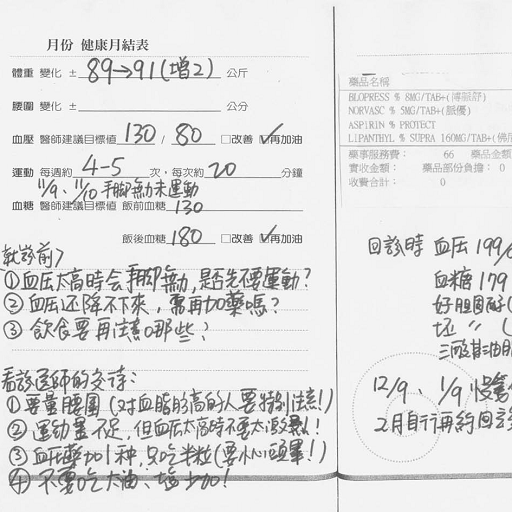 月份 健康月結表
體重 變化 ± 89→91(增2) 公斤
腰圍 變化 ± 公分
血壓 醫師建議目標值 130 / 80 □改善 ☑再加油
運動 每週約 4-5 次,每次約 20 分鐘
11/9、11/10 手腳無力未運動
血糖 醫師建議目標值 飯前血糖 130
飯後血糖 180 □改善 ☑再加油
就診前?
①血压太高時会手腳無力,是否先不要運動?
②血压还降不下來,需再加藥嗎?
③飲食要再注意哪些?
看診医師的交待:
①要量腰圍(对血脂肪高的人要特別注意!)
②運動量不足,但血压太高時不要太激烈!
③血压藥加1种,只吃半粒(要小心頭暈!)
④不要吃太油、
藥品名稱
BLOPRESS % 8MG/TAB+(博脈舒)
NORVASC % 5MG/TAB+(脈優)
ASPIRIN % PROTECT
LIPANTHYL % SUPRA 160MG/TAB+(
藥事服務費: 66 藥品金額
實收金額: 藥品部份負擔: 0
收費合計: 0
回診時 血压 199/
血糖 179
好胆固醇(
坏 〃 (
三酸甘油脂
12/9、1/9 慢箋
2月自行再約回診